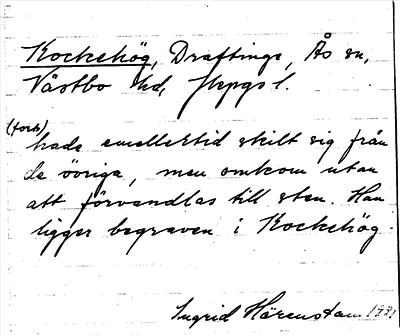 Kockehög, Draftinge, Ås sn,
Västbo hd, Jkpgs l.
(forts)
hade emellertid skilt sig från
de övriga, men omkom utan
att förvandlas till sten. Han
ligger begraven i Kockehög.
Ingrid Härenstam 1931